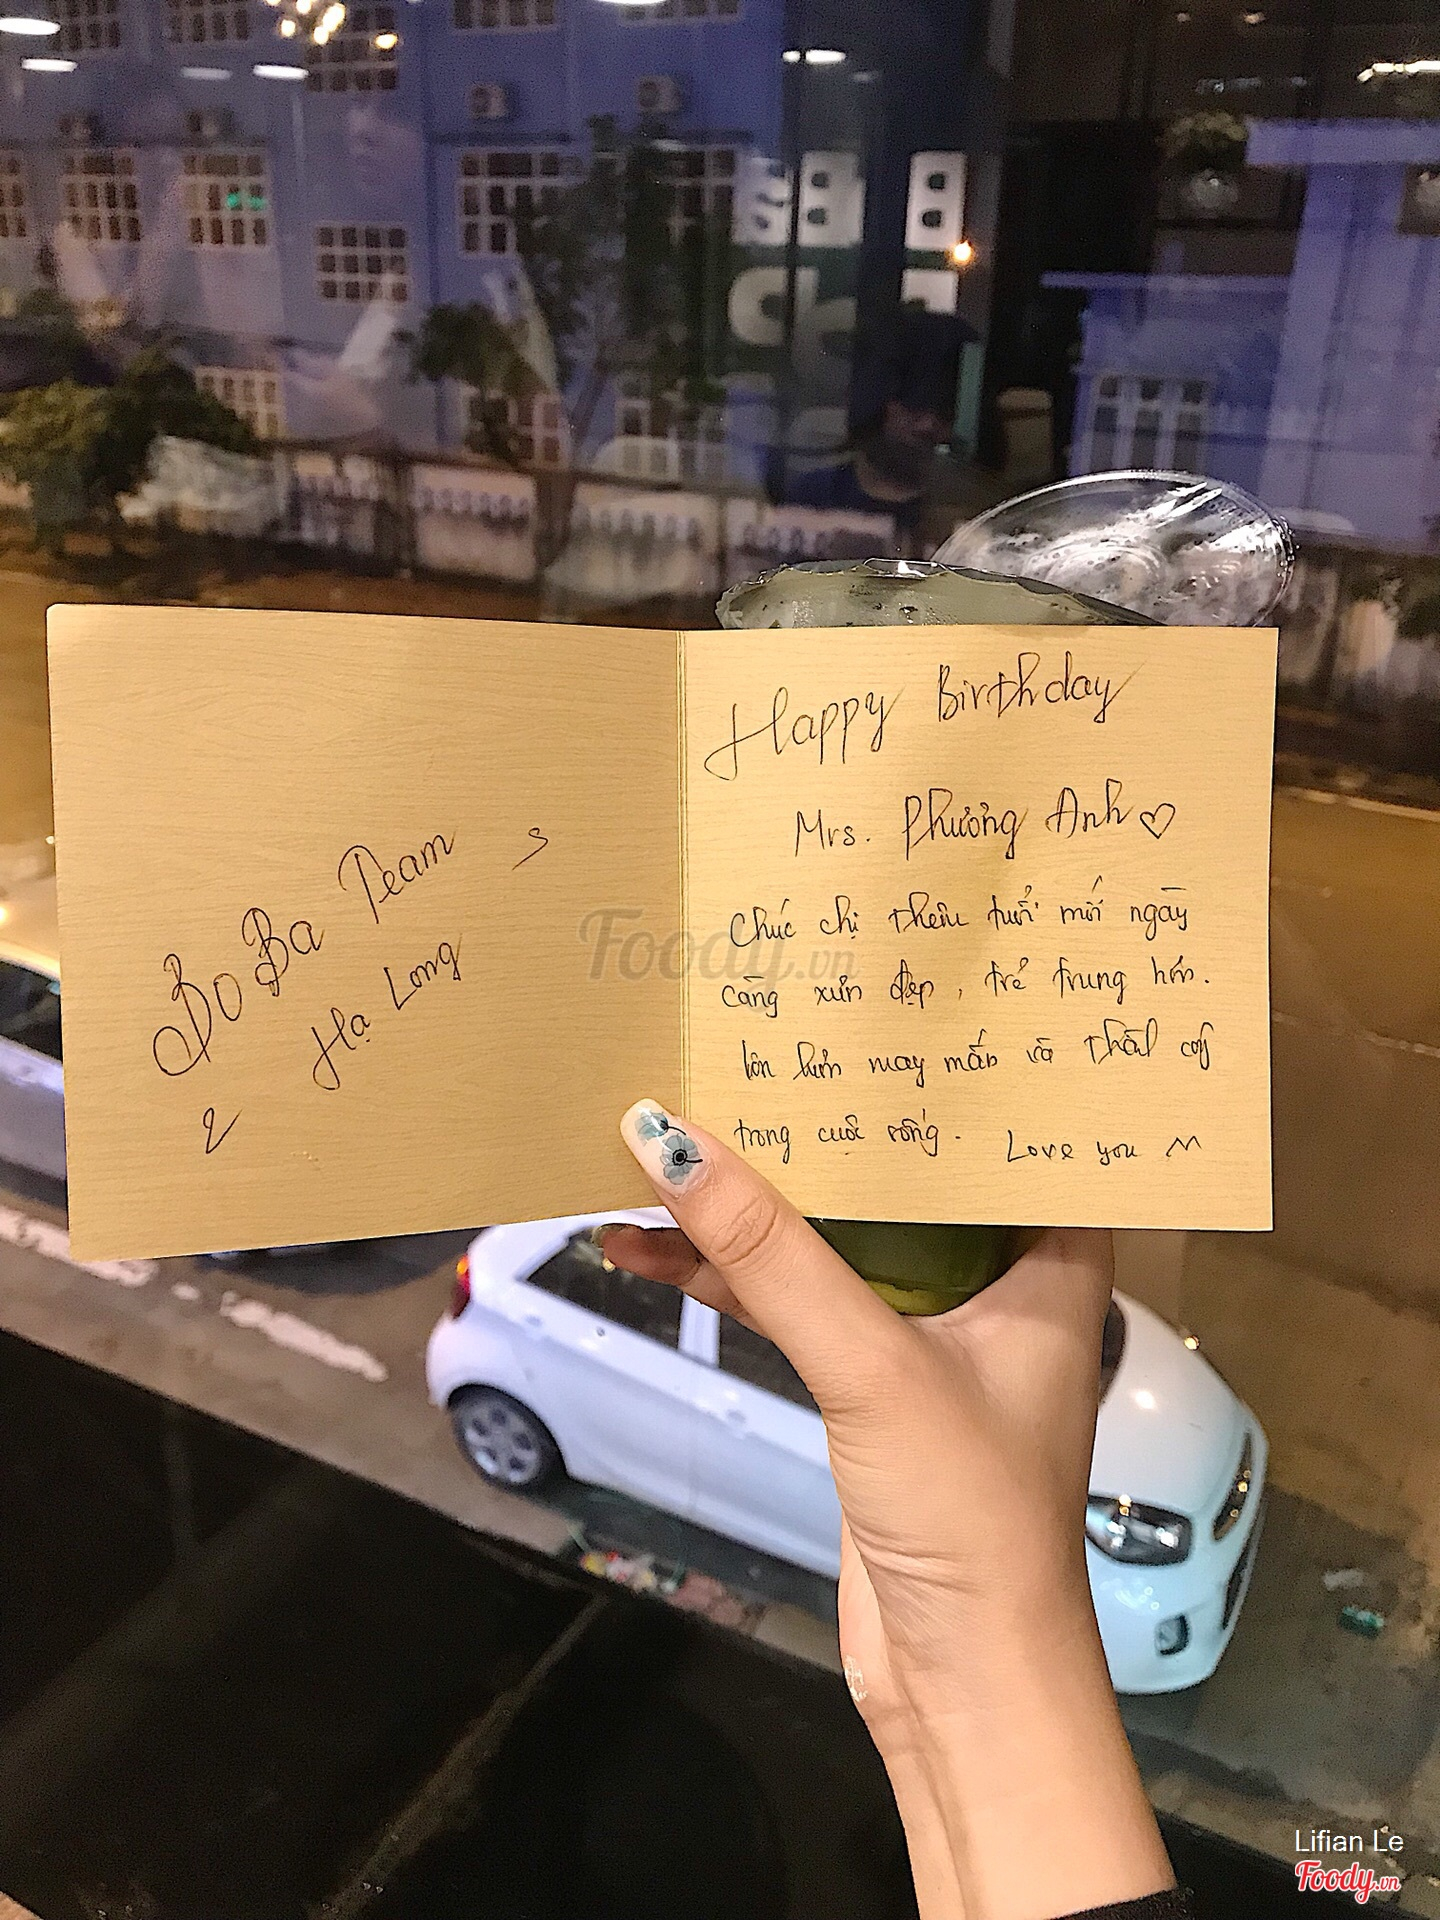 BoBa Team
Hạ Long
Happy Birthday
Mrs. Phương Anh ♡
Chúc chị thêm tuổi mới ngày
càng xinh đẹp, trẻ trung hơn.
luôn luôn may mắn và thành công
trong cuộc sống. Love you
Foody.vn
Lifian Le
Foody.vn